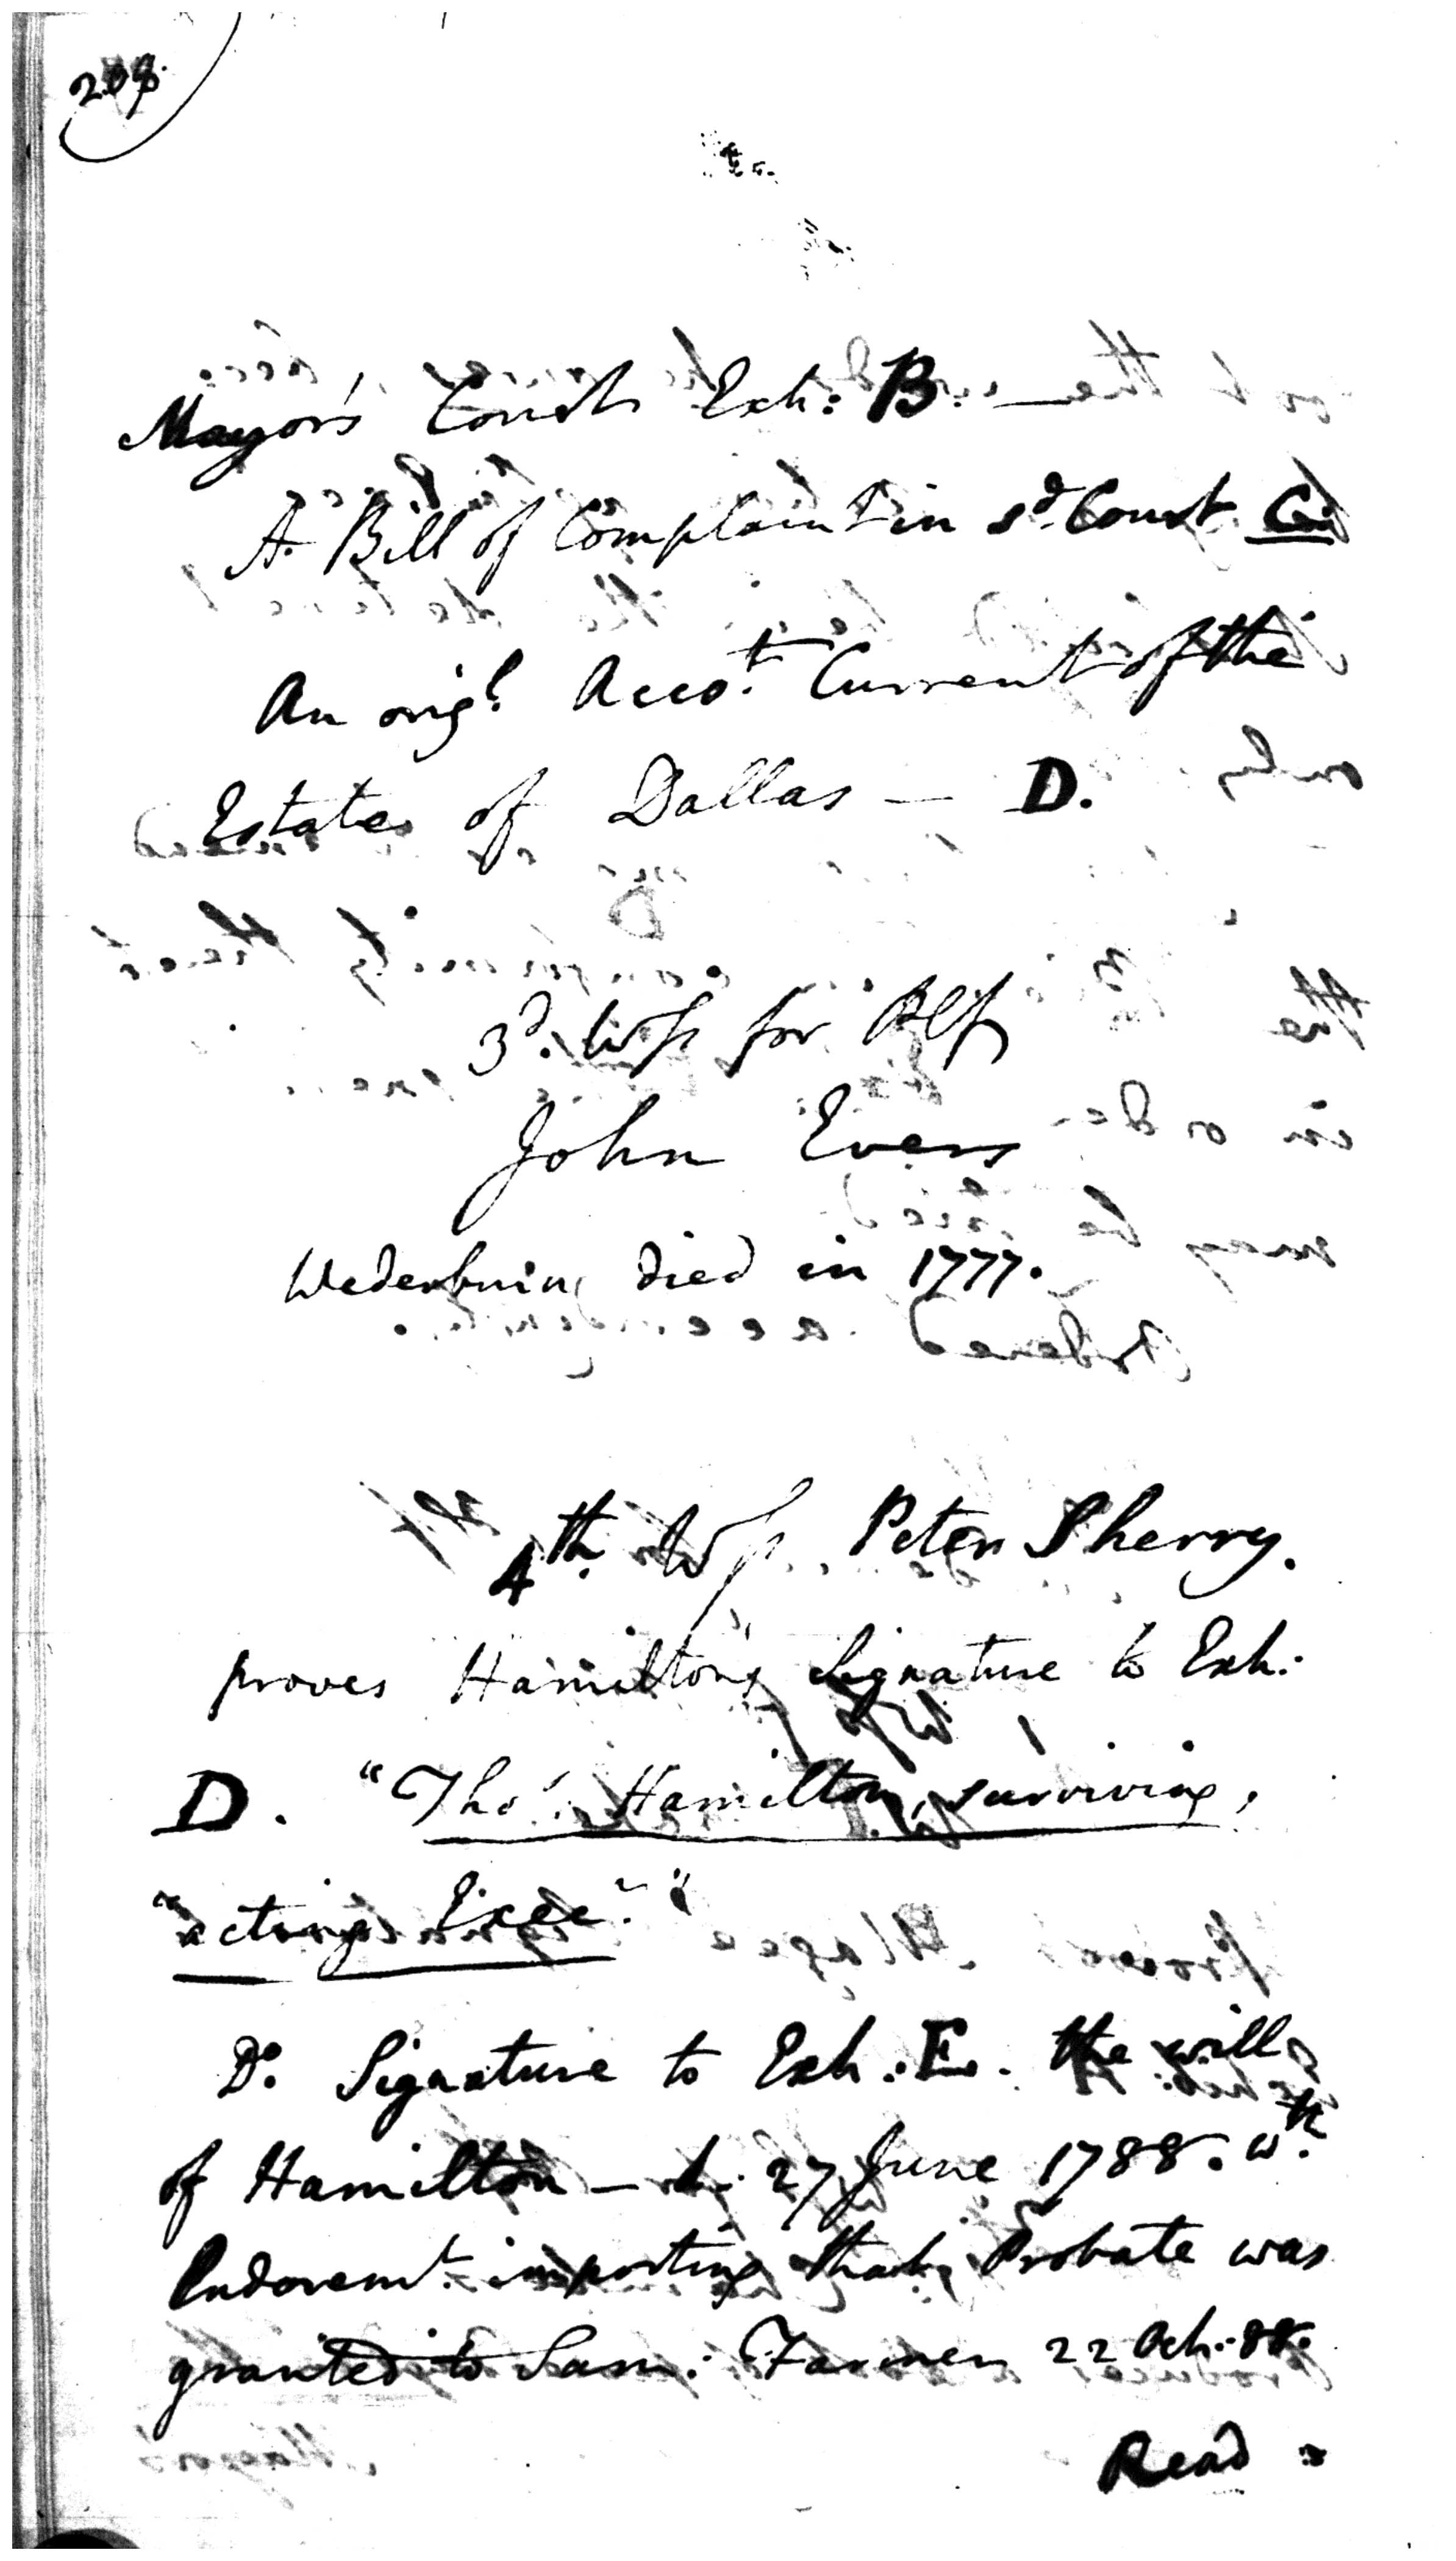 Mayor's Court Exh: B. —
A Bill of Complaint in sd. Court C.
An origl. Accot. Current of the
Estate of Dallas — D.
3d. Wss for Plf
John Evers
Wederburn died in 1777.
4th. Wss. Peter Sherry.
proves Hamilton's Signature to Exh:
D. "Thos. Hamilton, surviving,
"acting Exec.r"
Do. Signature to Exh: E. the will
of Hamilton — d. 27 June 1788. wth.
Endorsemt. importing that Probate was
granted to Sam: Farmer 22 Oct: 88.
Read =